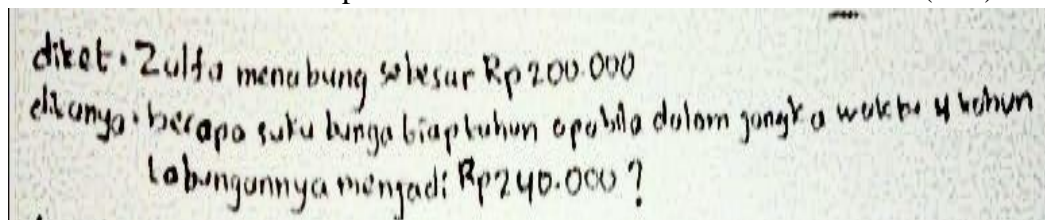 diket. Zulfa menabung sebesar Rp200.000
ditanya. berapa suku bunga tiap tahun apabila dalam jangka waktu 4 tahun
tabungannya menjadi Rp240.000?